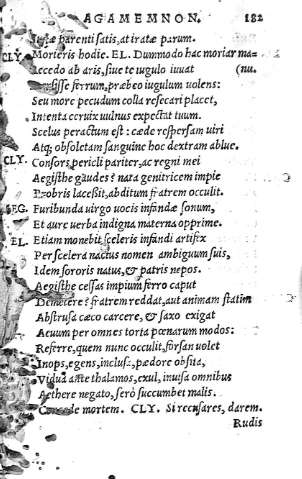 AGAMEMNON. 182
Iustæ parenti satis, at iratæ parum.
CLY. Morteris hodie. EL. Dummodo hac moriar ma=
Recedo ab aris, siue te iugulo iuuat (nu.
isse ferrum, præbeo iugulum uolens:
Seu more pecudum colla resecari placet,
Intenta ceruix uulnus expectat tuum.
Scelus peractum est: cæde respersam uiri
Atq; obsoletam sanguine hoc dextram ablue.
CLY. Consors pericli pariter, ac regni mei
Aegisthe gaudes? nata genitricem impie
Probris lacessit, abditum fratrem occulit.
AEG. Furibunda uirgo uocis infandæ sonum,
Et aure uerba indigna materna opprime.
EL. Etiam monebit, sceleris infandi artifex
Per scelera nactus nomen ambiguum suis,
Idem sororis natus, & patris nepos.
Aegisthe cessas impium ferro caput
Demetere? fratrem reddat, aut animam statim
Abstrusa cæco carcere, & saxo exigat
Aeuum per omnes torta pœnarum modos:
Referre, quem nunc occulit, forsan uolet
Inops, egens, inclusa, pædore obsita,
Vidua ante thalamos, exul, inuisa omnibus
Aethere negato, sero succumbet malis.
Concede mortem. CLY. Si recusares, darem.
Rudis